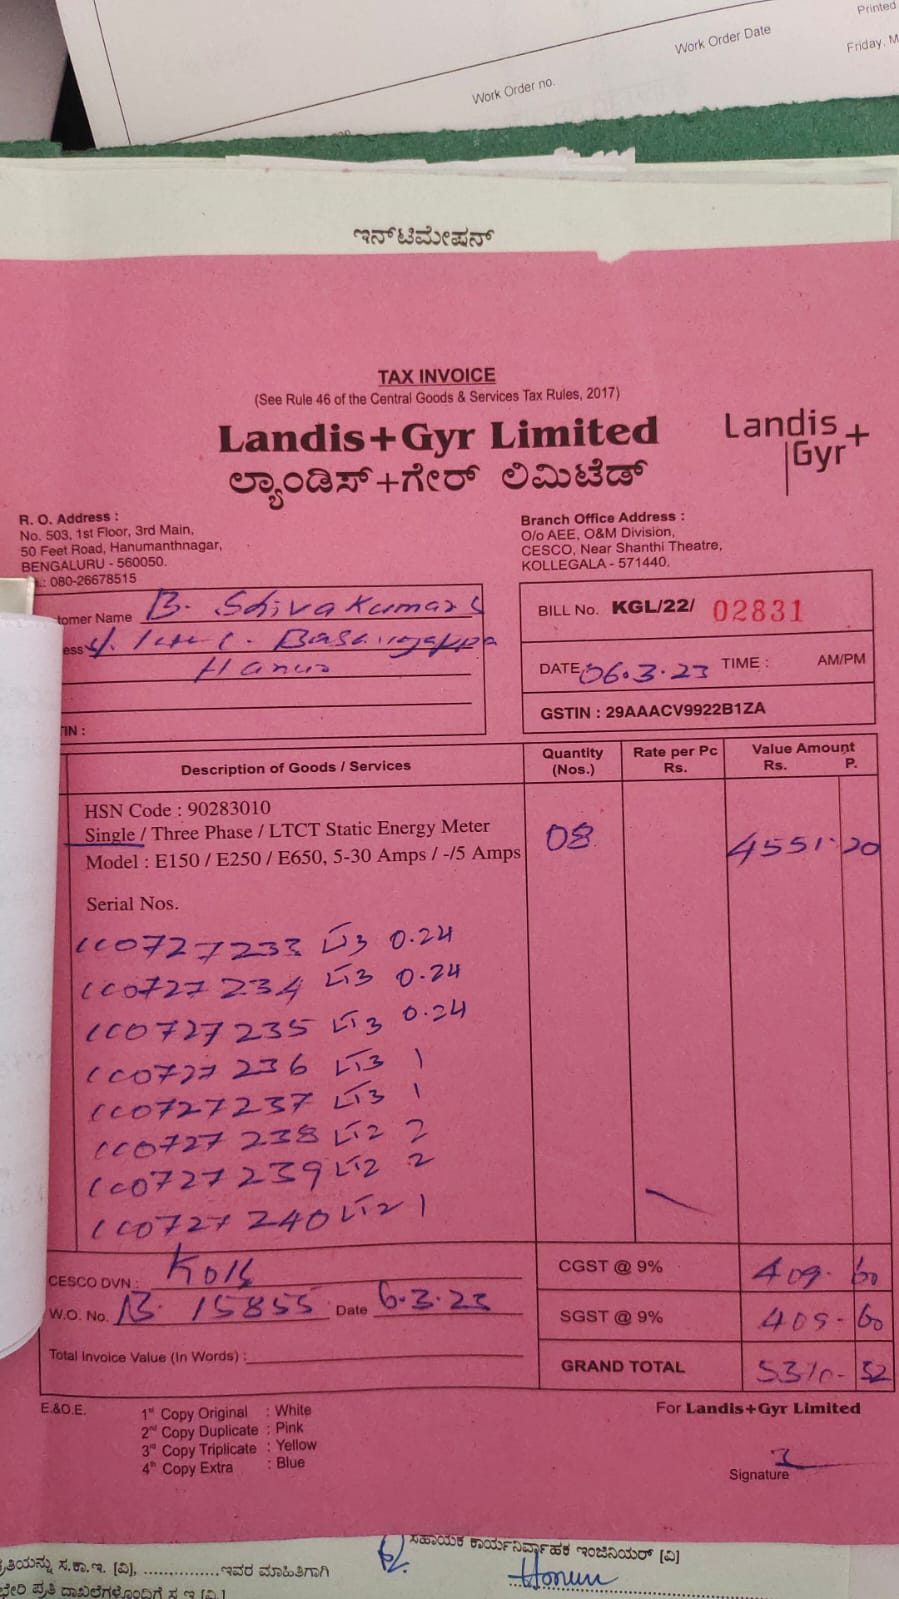 Printed
Work Order Date
Friday, M
Work Order no.
ಇನ್‌ಟಿಮೇಷನ್
TAX INVOICE
(See Rule 46 of the Central Goods & Services Tax Rules, 2017)
Landis+Gyr Limited
Landis
Gyr+
ಲ್ಯಾಂಡಿಸ್+ಗೇರ್ ಲಿಮಿಟೆಡ್
R. O. Address :
No. 503, 1st Floor, 3rd Main,
50 Feet Road, Hanumanthnagar,
BENGALURU - 560050.
.: 080-26678515
Branch Office Address :
O/o AEE, O&M Division,
CESCO, Near Shanthi Theatre,
KOLLEGALA - 571440.
tomer Name B. Shivakumar
ess Basavarajappa
Hanur
TIN :
BILL No. KGL/22/ 02831
DATE 06.3.23 TIME : AM/PM
GSTIN : 29AAACV9922B1ZA
Description of Goods / Services Quantity (Nos.) Rate per Pc Rs. Value Amount Rs. P.
HSN Code : 90283010
Single / Three Phase / LTCT Static Energy Meter 08 4551.20
Model : E150 / E250 / E650, 5-30 Amps / -/5 Amps
Serial Nos.
CC0727233 LT3 0.24
CC0727234 LT3 0.24
CC0727235 LT3 0.24
CC0727236 LT3 1
CC0727237 LT3 1
CC0727238 LT2 2
CC0727239 LT2 2
CC0727240 LT2 1
CESCO DVN :
W.O. No. 15855 Date 6.3.23
Total Invoice Value (In Words) :
CGST @ 9% 409.60
SGST @ 9% 409.60
GRAND TOTAL 5370.52
E.&O.E.
1st Copy Original : White
2nd Copy Duplicate : Pink
3rd Copy Triplicate : Yellow
4th Copy Extra : Blue
For Landis+Gyr Limited
Signature
ಸಹಾಯಕ ಕಾರ್ಯನಿರ್ವಾಹಕ ಇಂಜಿನಿಯರ್ [ವಿ]
ಪ್ರತಿಯನ್ನು ಸ.ಕಾ.ಇ. [ವಿ], ...............ಇವರ ಮಾಹಿತಿಗಾಗಿ
Hanur
ಪ್ರತಿ ದಾಖಲೆಗಳೊಂದಿಗೆ ಸ.ಇ.[ವಿ.]